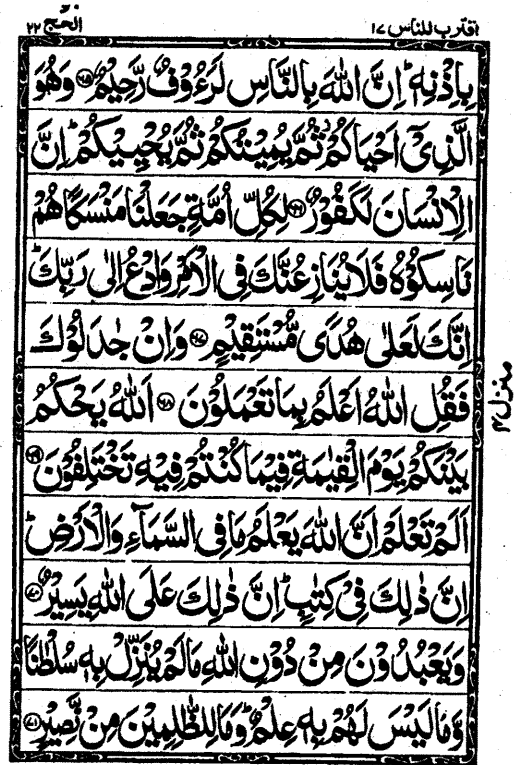 اقترب للناس ١٧
الحج ٢٢
بِاِذْنِهٖ ؕ اِنَّ اللّٰهَ بِالنَّاسِ لَرَءُوْفٌ رَّحِيْمٌ ﴿٦٥﴾ وَهُوَ
الَّذِىْۤ اَحْيَاكُمْ ثُمَّ يُمِيْتُكُمْ ثُمَّ يُحْيِيْكُمْ ؕ اِنَّ
الْاِنْسَانَ لَكَفُوْرٌ ﴿٦٦﴾ لِكُلِّ اُمَّةٍ جَعَلْنَا مَنْسَكًا هُمْ
نَاسِكُوْهُ فَلَا يُنَازِعُنَّكَ فِى الْاَمْرِ وَادْعُ اِلٰى رَبِّكَ ؕ
اِنَّكَ لَعَلٰى هُدًى مُّسْتَقِيْمٍ ﴿٦٧﴾ وَاِنْ جٰدَلُوْكَ
فَقُلِ اللّٰهُ اَعْلَمُ بِمَا تَعْمَلُوْنَ ﴿٦٨﴾ اَللّٰهُ يَحْكُمُ
بَيْنَكُمْ يَوْمَ الْقِيٰمَةِ فِيْمَا كُنْتُمْ فِيْهِ تَخْتَلِفُوْنَ ﴿٦٩﴾
اَلَمْ تَعْلَمْ اَنَّ اللّٰهَ يَعْلَمُ مَا فِى السَّمَآءِ وَالْاَرْضِ ؕ
اِنَّ ذٰلِكَ فِىْ كِتٰبٍ ؕ اِنَّ ذٰلِكَ عَلَى اللّٰهِ يَسِيْرٌ ﴿٧٠﴾
وَيَعْبُدُوْنَ مِنْ دُوْنِ اللّٰهِ مَا لَمْ يُنَزِّلْ بِهٖ سُلْطٰنًا
وَّمَا لَيْسَ لَهُمْ بِهٖ عِلْمٌ ؕ وَمَا لِلظّٰلِمِيْنَ مِنْ نَّصِيْرٍ ﴿٧١﴾
منزل ٤